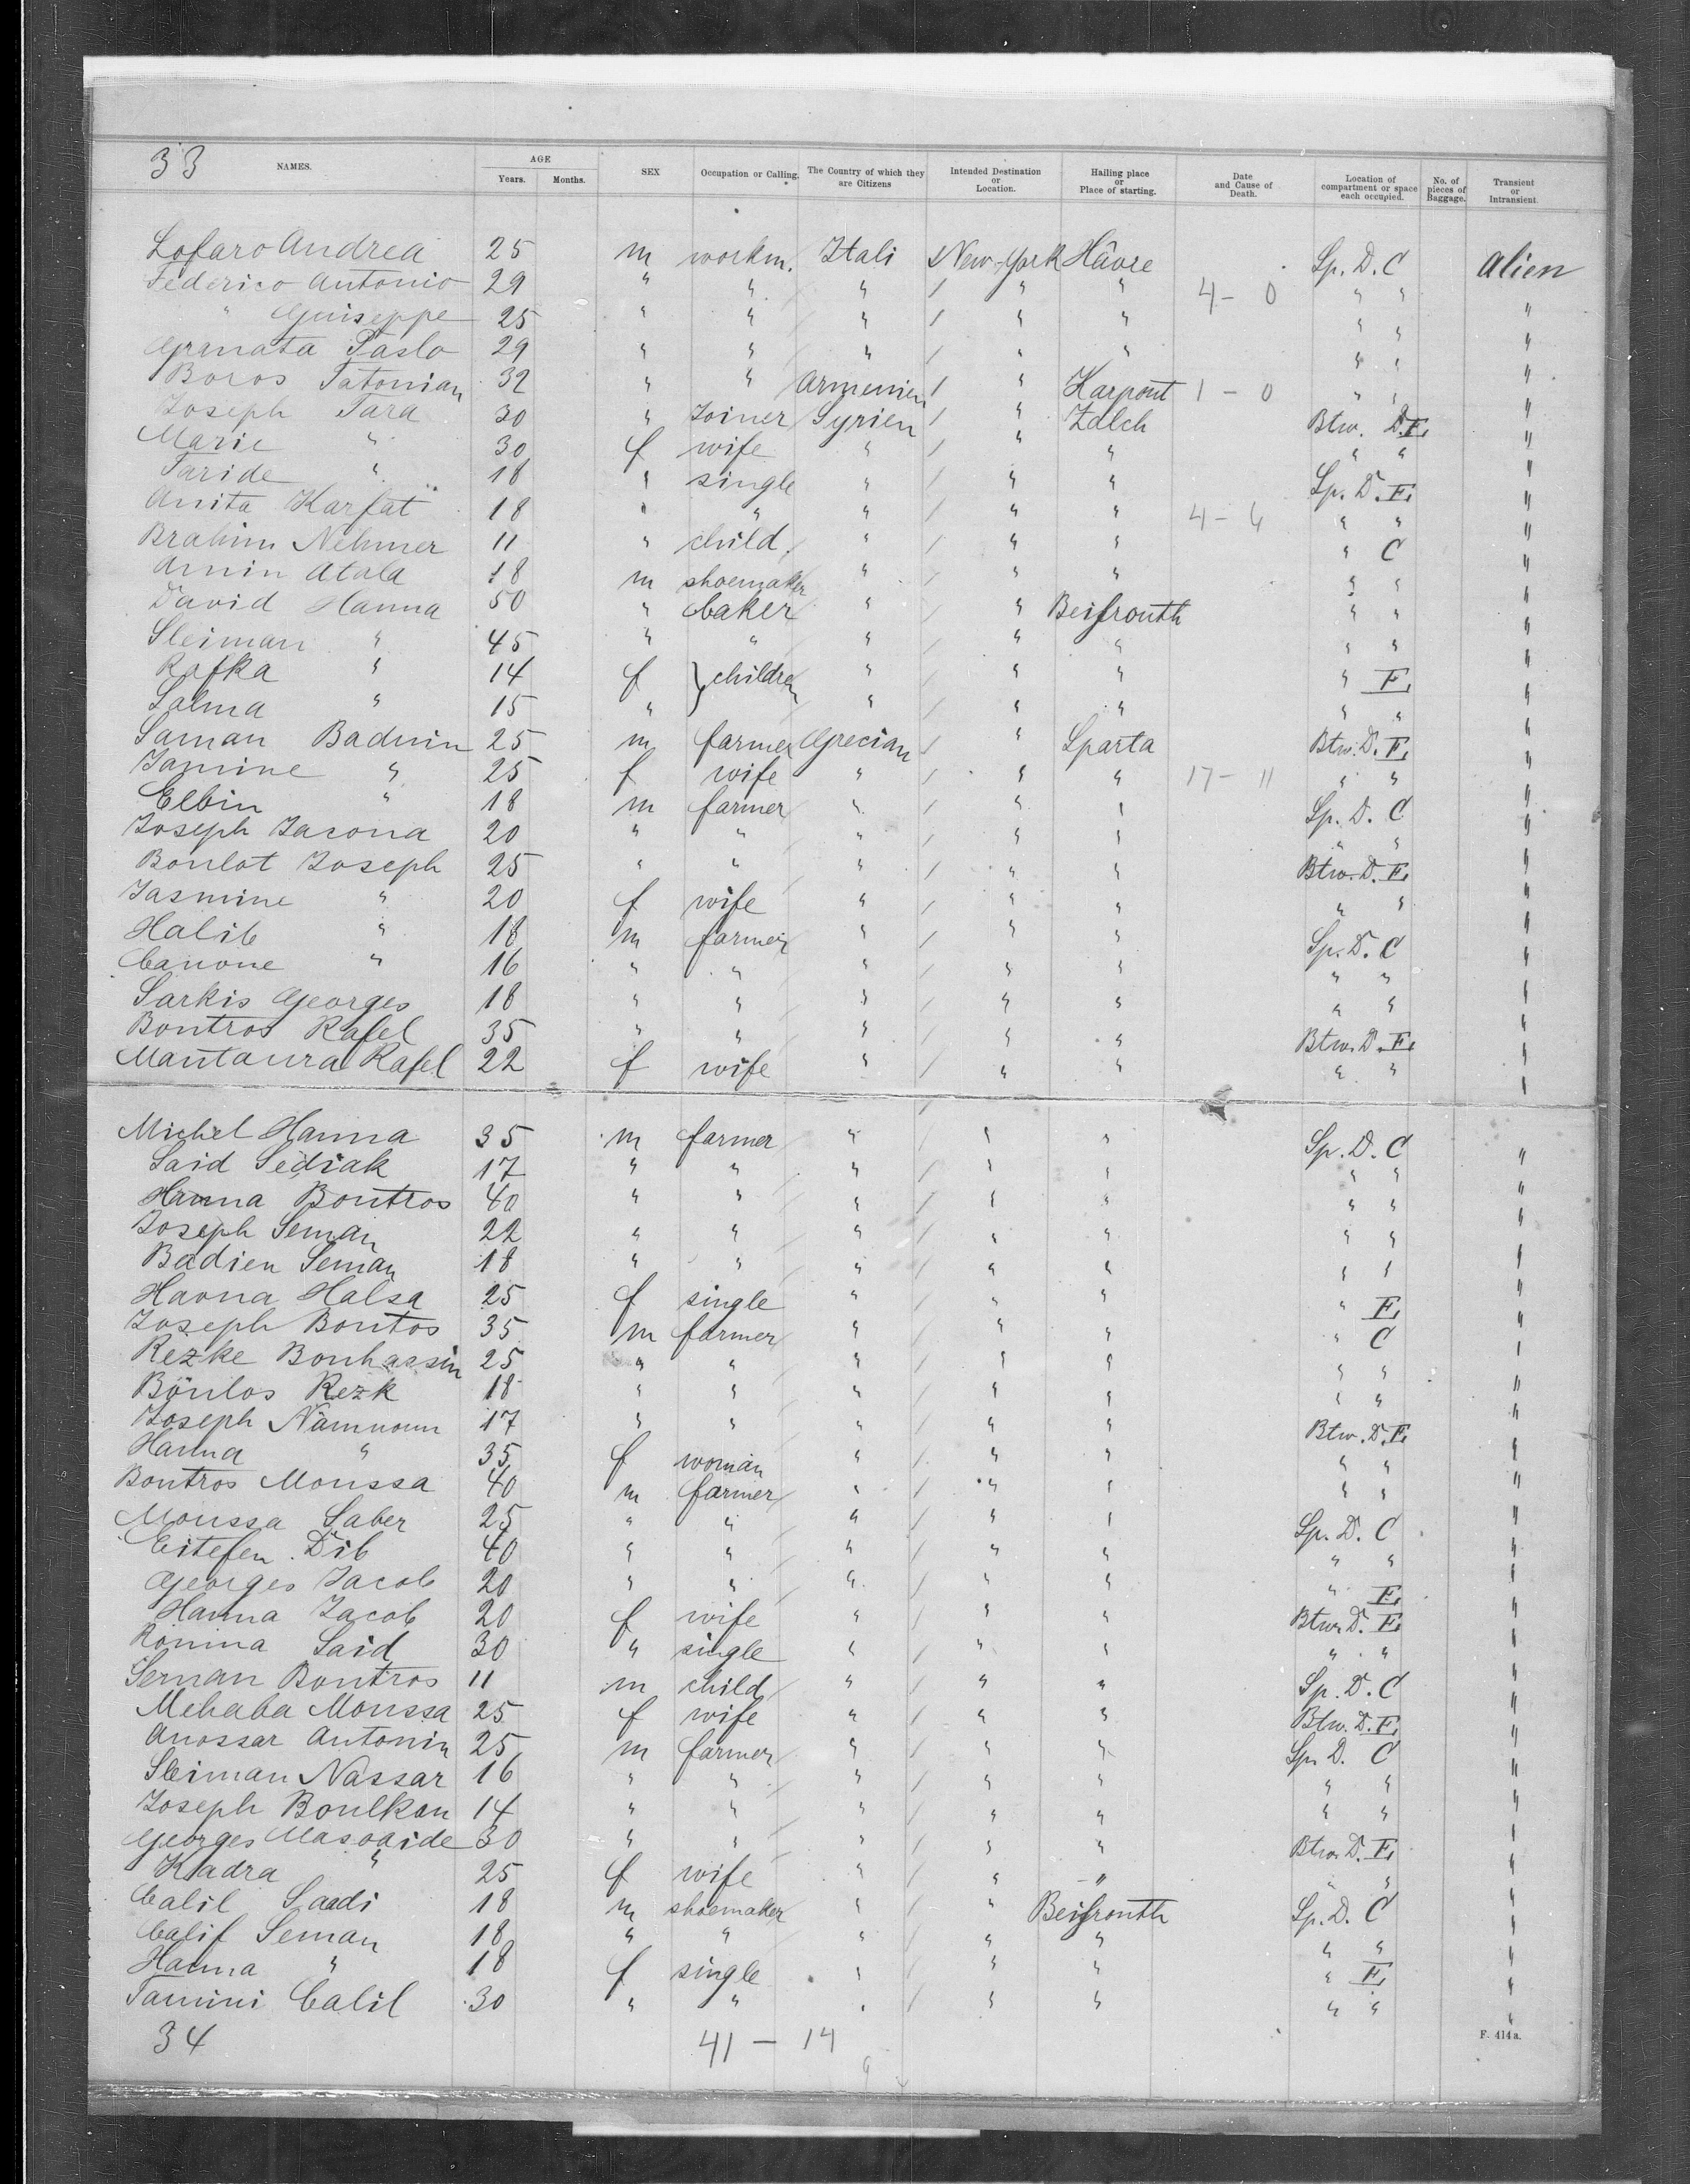 33 NAMES. AGE Years. Months. SEX Occupation or Calling. The Country of which they are Citizens Intended Destination or Location. Hailing place or Place of starting. Date and Cause of Death. Location of compartment or space each occupied. No. of pieces of Baggage. Transient or Intransient.
Lofaro Andrea 25 m workm. Itali New-York Hâvre Sp. D. C Alien
Federico Antonio 29 " " " / " " 4 - 0 " " "
" Guiseppe 25 " " " / " " " " "
Granata Paslo 29 " " " / " " " " "
Boros Tatonian 32 " " Armenien / " Harpout 1 - 0 " " "
Joseph Tara 30 " Joiner Syrien / " Zalch Btw. D.E. "
Marie " 30 f wife " / " " " " "
Taride " 18 " single " / " " Sp. D. E. "
Anita Karfat 18 " " " / " " 4 - 6 " " "
Brahim Nehmer 11 " child. " / " " " C "
Amin Atala 18 m shoemaker " / " " " " "
David Hanna 50 " baker " / " Beifrouth " " "
Sleiman " 45 " " " / " " " " "
Rafka " 14 f } children " / " " " E. "
Salma " 15 " " / " " " " "
Saman Baduin 25 m farmer Grecian / " Sparta Btw. D. E. "
Jamine " 25 f wife " / " " 17 - 11 " " "
Elbin " 18 m farmer " / " " Sp. D. C "
Joseph Jacona 20 " " " / " " " " "
Boulot Joseph 25 " " " / " " Btw. D. E. "
Jasmine " 20 f wife " / " " " " "
Halib " 18 m farmer " / " " Sp. D. C "
Canone " 16 " " " / " " " " "
Sarkis Georges 18 " " " / " " " " "
Bontros Rafel 35 " " " / " " Btw. D. E. "
Mantaura Rafel 22 f wife " / " " " " "
Michel Hanna 35 m farmer " / " " Sp. D. C "
Said Sediak 17 " " " / " " " " "
Hanna Bontros 40 " " " / " " " " "
Joseph Seman 22 " " " / " " " " "
Badien Seman 18 " " " / " " " " "
Havna Halsa 25 f single " / " " " E. "
Joseph Bontos 35 m farmer " / " " " C "
Rezke Bonhassin 25 " " " / " " " " "
Boulos Rezk 18 " " " / " " " " "
Joseph Namnoum 17 " " " / " " Btw. D. E. "
Hanna " 35 f woman " / " " " " "
Bontros Moussa 40 m farmer " / " " " " "
Moussa Saber 25 " " " / " " Sp. D. C "
Eitefen Dib 40 " " " / " " " " "
Georges Jacob 20 " " " / " " " E. "
Hanna Jacob 20 f wife " / " " Btw. D. E. "
Romina Said 30 " single " / " " " " "
Seman Bontros 11 m child " / " " Sp. D. C "
Mehaba Moussa 25 f wife " / " " Btw. D. E. "
Anossar Antonin 25 m farmer " / " " Sp. D. C "
Sleiman Nassar 16 " " " / " " " " "
Joseph Boulkan 14 " " " / " " " " "
Georges Masoaide 30 " " " / " " Btw. D. E. "
Kadra " 25 f wife " / " " " " "
Calil Saadi 18 m shoemaker " / " Beifrouth Sp. D. C "
Calif Seman 18 " " " / " " " " "
Hanna " 18 f single " / " " " E. "
Tamini Calil 30 " " " / " " " " "
34 41 - 14 F. 414 a.